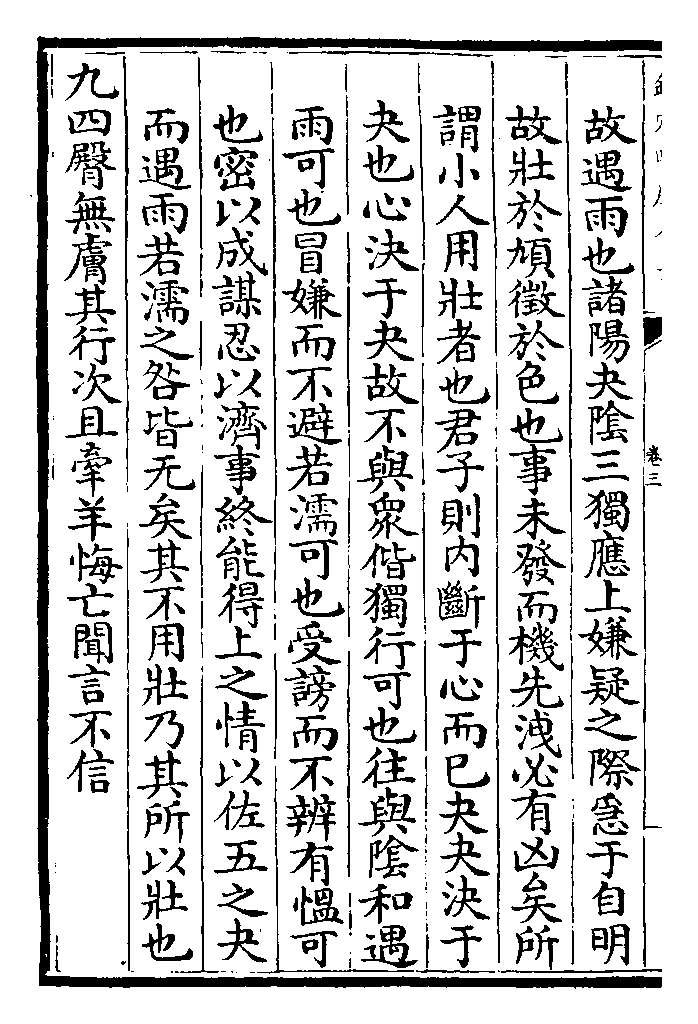 卷三
故遇雨也諸陽夬陰三獨應上嫌疑之際急于自明
故壯於頄徵於色也事未發而機先洩必有凶矣所
謂小人用壯者也君子則内斷于心而已夬夬決于
夬也心決于夬故不與衆偕獨行可也往與陰和遇
雨可也冒嫌而不避若濡可也受謗而不辨有慍可
也密以成謀忍以濟事終能得上之情以佐五之夬
而遇雨若濡之咎皆无矣其不用壯乃其所以壯也
九四臀無膚其行次且牽羊悔亡聞言不信